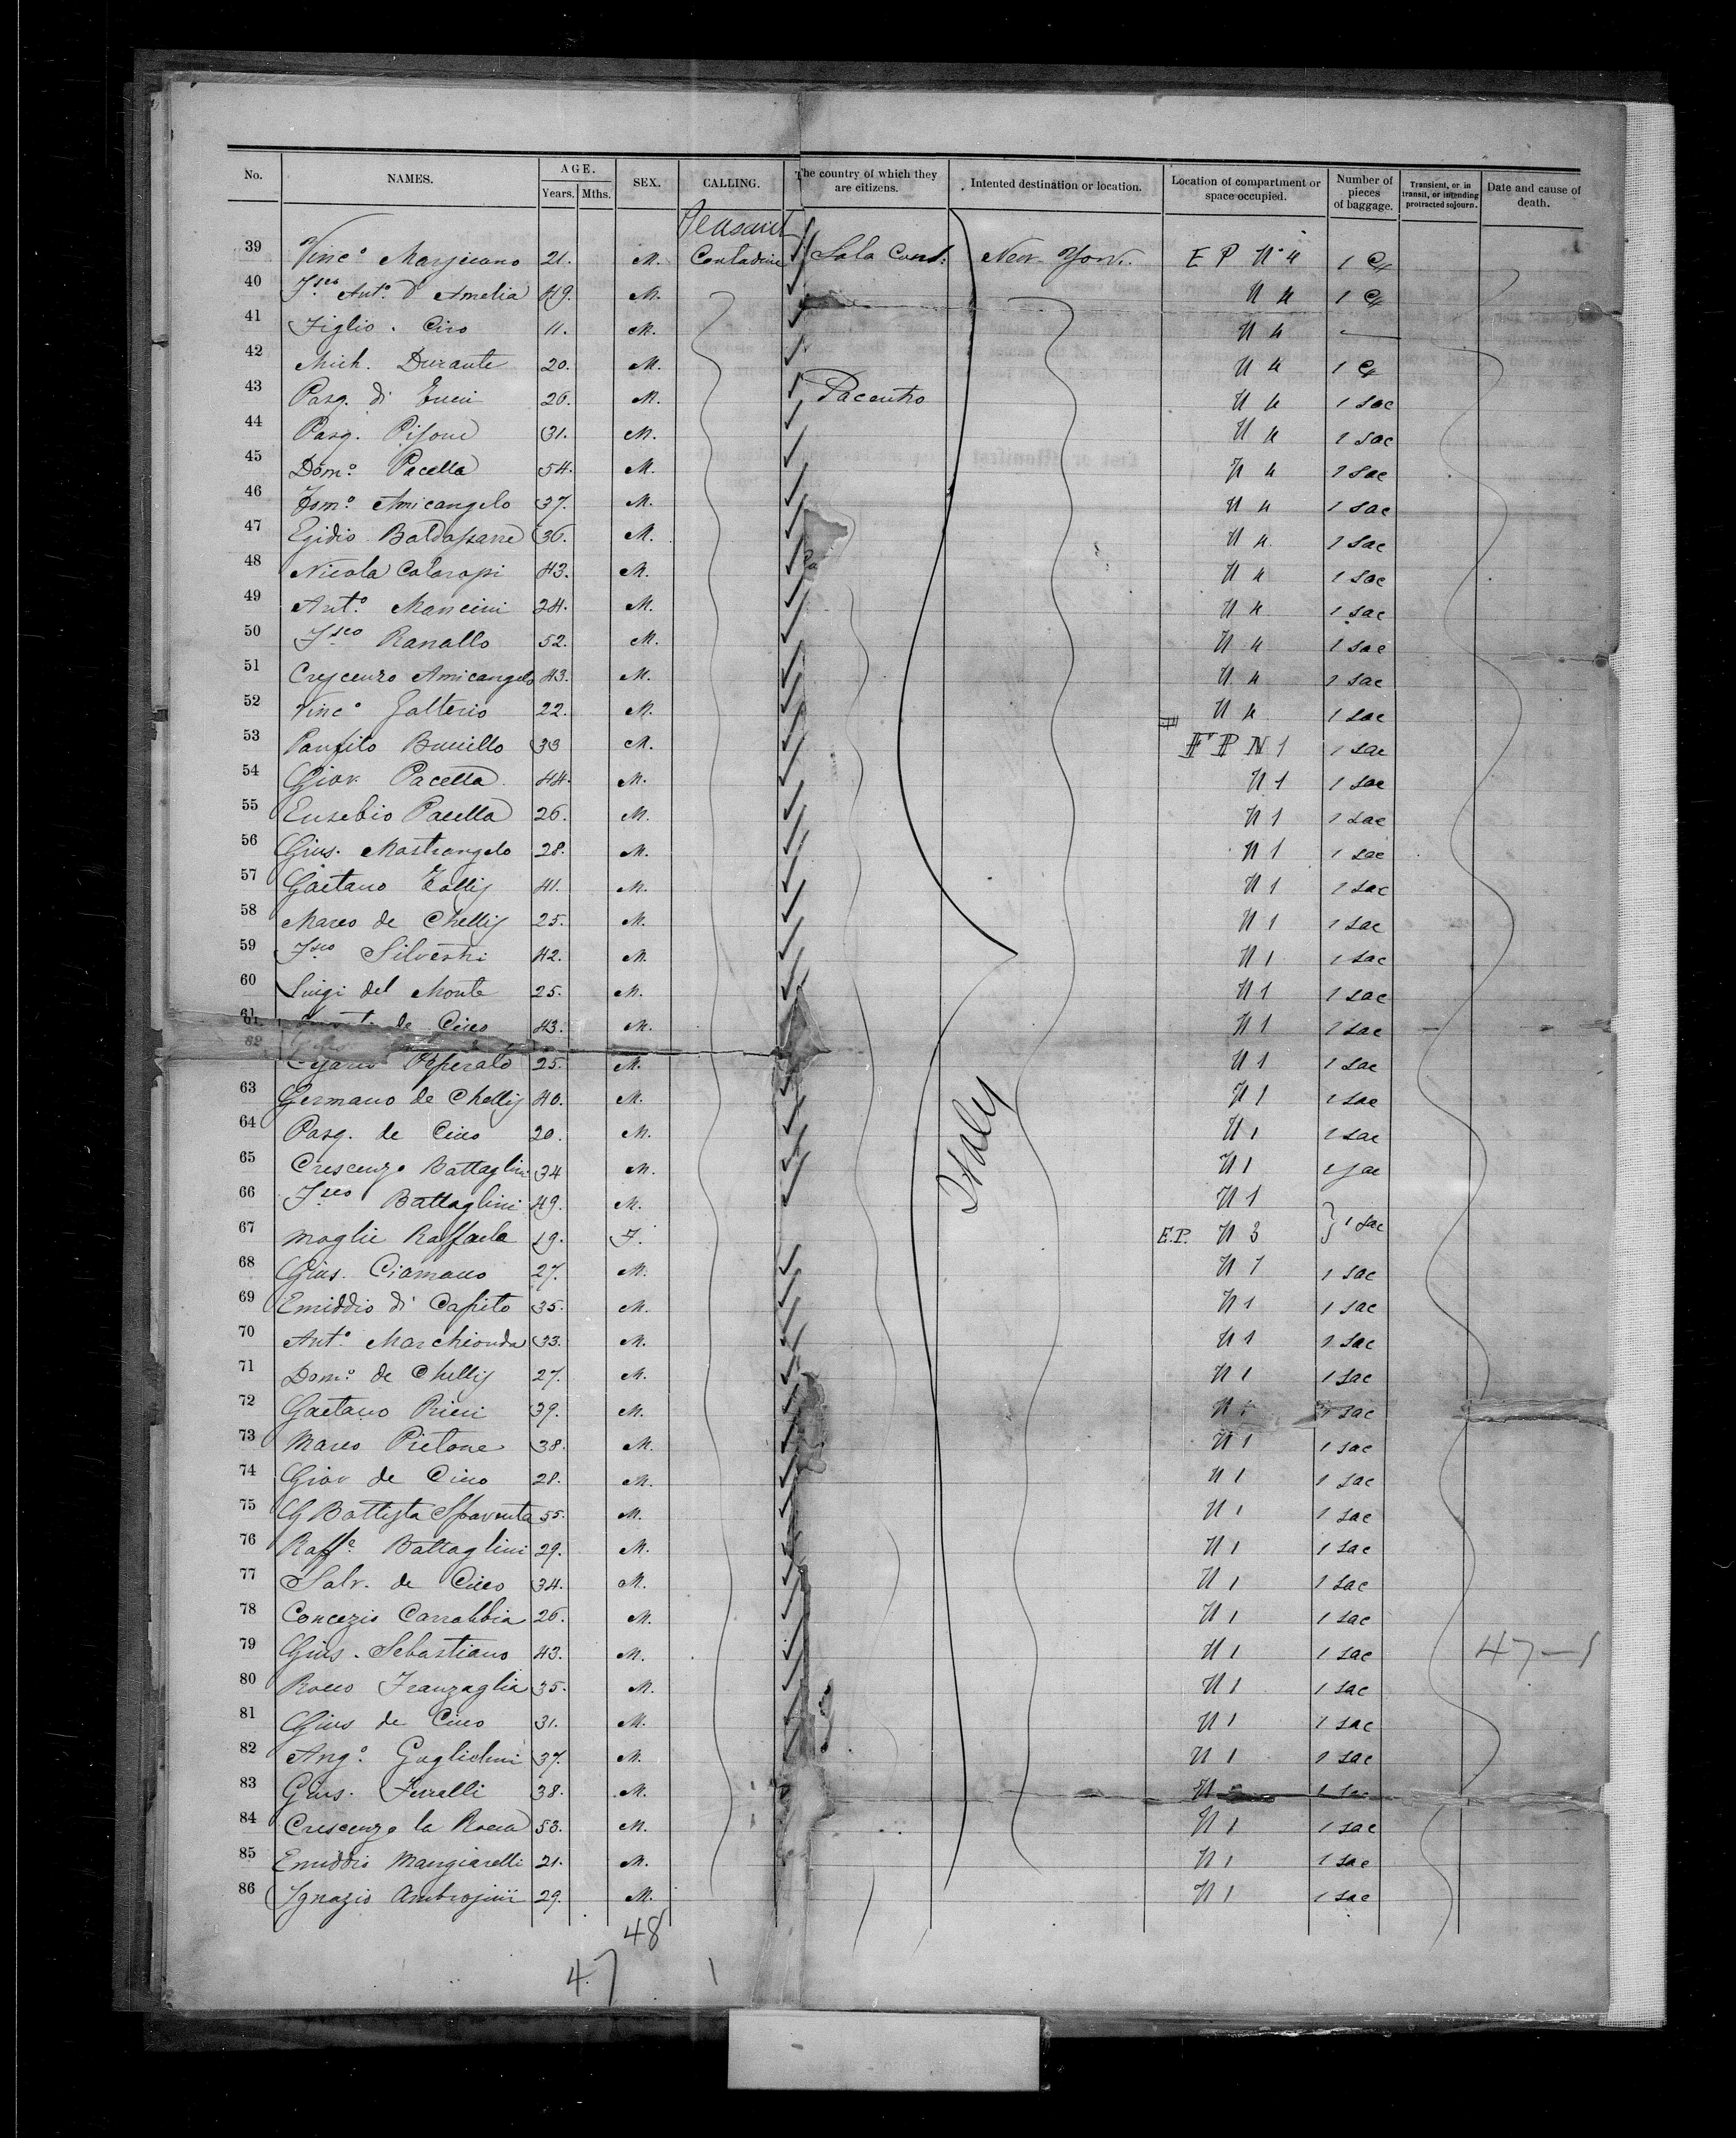 No. NAMES. AGE. Years. Mths. SEX. CALLING. The country of which they are citizens. Intented destination or location. Location of compartment or space occupied. Number of pieces of baggage. Transient, or in transit, or intending protracted sojourn. Date and cause of death.
Peasant
39 Vinc.o 21. M. Contadine Sala Cons. New York. E P N° 4 1
40 F.sco Ant.o D Amelia 49. M. N 4 1
41 Figlio. Ciro 11. M. N 4 —
42 Mich. Durante 20. M. N 4 1
43 Pasq. di 26. M. Pacentro N 4 1 sac
44 Pasq. 31. M. N 4 1 sac
45 Dom.o Pacella 54. M. N 4 1 sac
46 Dom.o Amicangelo 37. M. N 4 1 sac
47 Egidio Baldassarre 36. M. N 4 1 sac
48 Nicola Colaropi 43. M. N 4 1 sac
49 Ant.o Mancini 24. M. N 4 1 sac
50 F.sco Ranallo 52. M. N 4 1 sac
51 Crescenzo Amicangelo 43. M. N 4 1 sac
52 Vinc.o Galterio 22. M. N 4 1 sac
53 Panfilo Bucillo 33 M. F P N 1 1 sac
54 Giov. Pacella 44. M. N 1 1 sac
55 Eusebio Pacella 26. M. N 1 1 sac
56 Gius. Mastrangelo 28. M. N 1 1 sac
57 Gaetano 41. M. N 1 1 sac
58 Marco de Chellis 25. M. N 1 1 sac
59 F.sco Silvestri 42. M. N 1 1 sac
60 Luigi del Monte 25. M. N 1 1 sac
61 de Cicco 43. M. N 1 1 sac
62 25. M. N 1 1 sac
63 Germano de Chellis 40. M. N 1 1 sac
64 Pasq. de Cicco 20. M. N 1 1 sac
65 Crescenzo Battaglini 34 M. N 1 1 sac
66 F.sco Battaglini 49. M. N 1
67 moglie Raffaela 19. F. E.P. N 3 1 sac
68 Gius. 27. M. N 1 1 sac
69 Emiddio di Capito 35. M. N 1 1 sac
70 Ant.o Marchionda 33. M. N 1 1 sac
71 Dom.o de Chellis 27. M. N 1 1 sac
72 Gaetano 39. M. N 1 1 sac
73 Marco 38. M. N 1 1 sac
74 Giov de Cicco 28. M. N 1 1 sac
75 G Battista Spaventa 55. M. N 1 1 sac
76 Raff.e Battaglini 29. M. N 1 1 sac
77 Salv. de Cicco 34. M. N 1 1 sac
78 Concezio Carrabbia 26. M. N 1 1 sac
79 Gius. Sebastiano 43. M. N 1 1 sac 47—1
80 Rocco Franzaglia 35. M. N 1 1 sac
81 Gius de Cicco 31. M. N 1 1 sac
82 Ang.o 37. M. N 1 1 sac
83 Gius. 38. M. N 1 sac
84 Crescenzo la Rocca 53. M. N 1 1 sac
85 Emiddio Mangiarelli 21. M. N 1 1 sac
86 Ignazio Ambrosini 29. M. N 1 1 sac
Italy
48
47 1